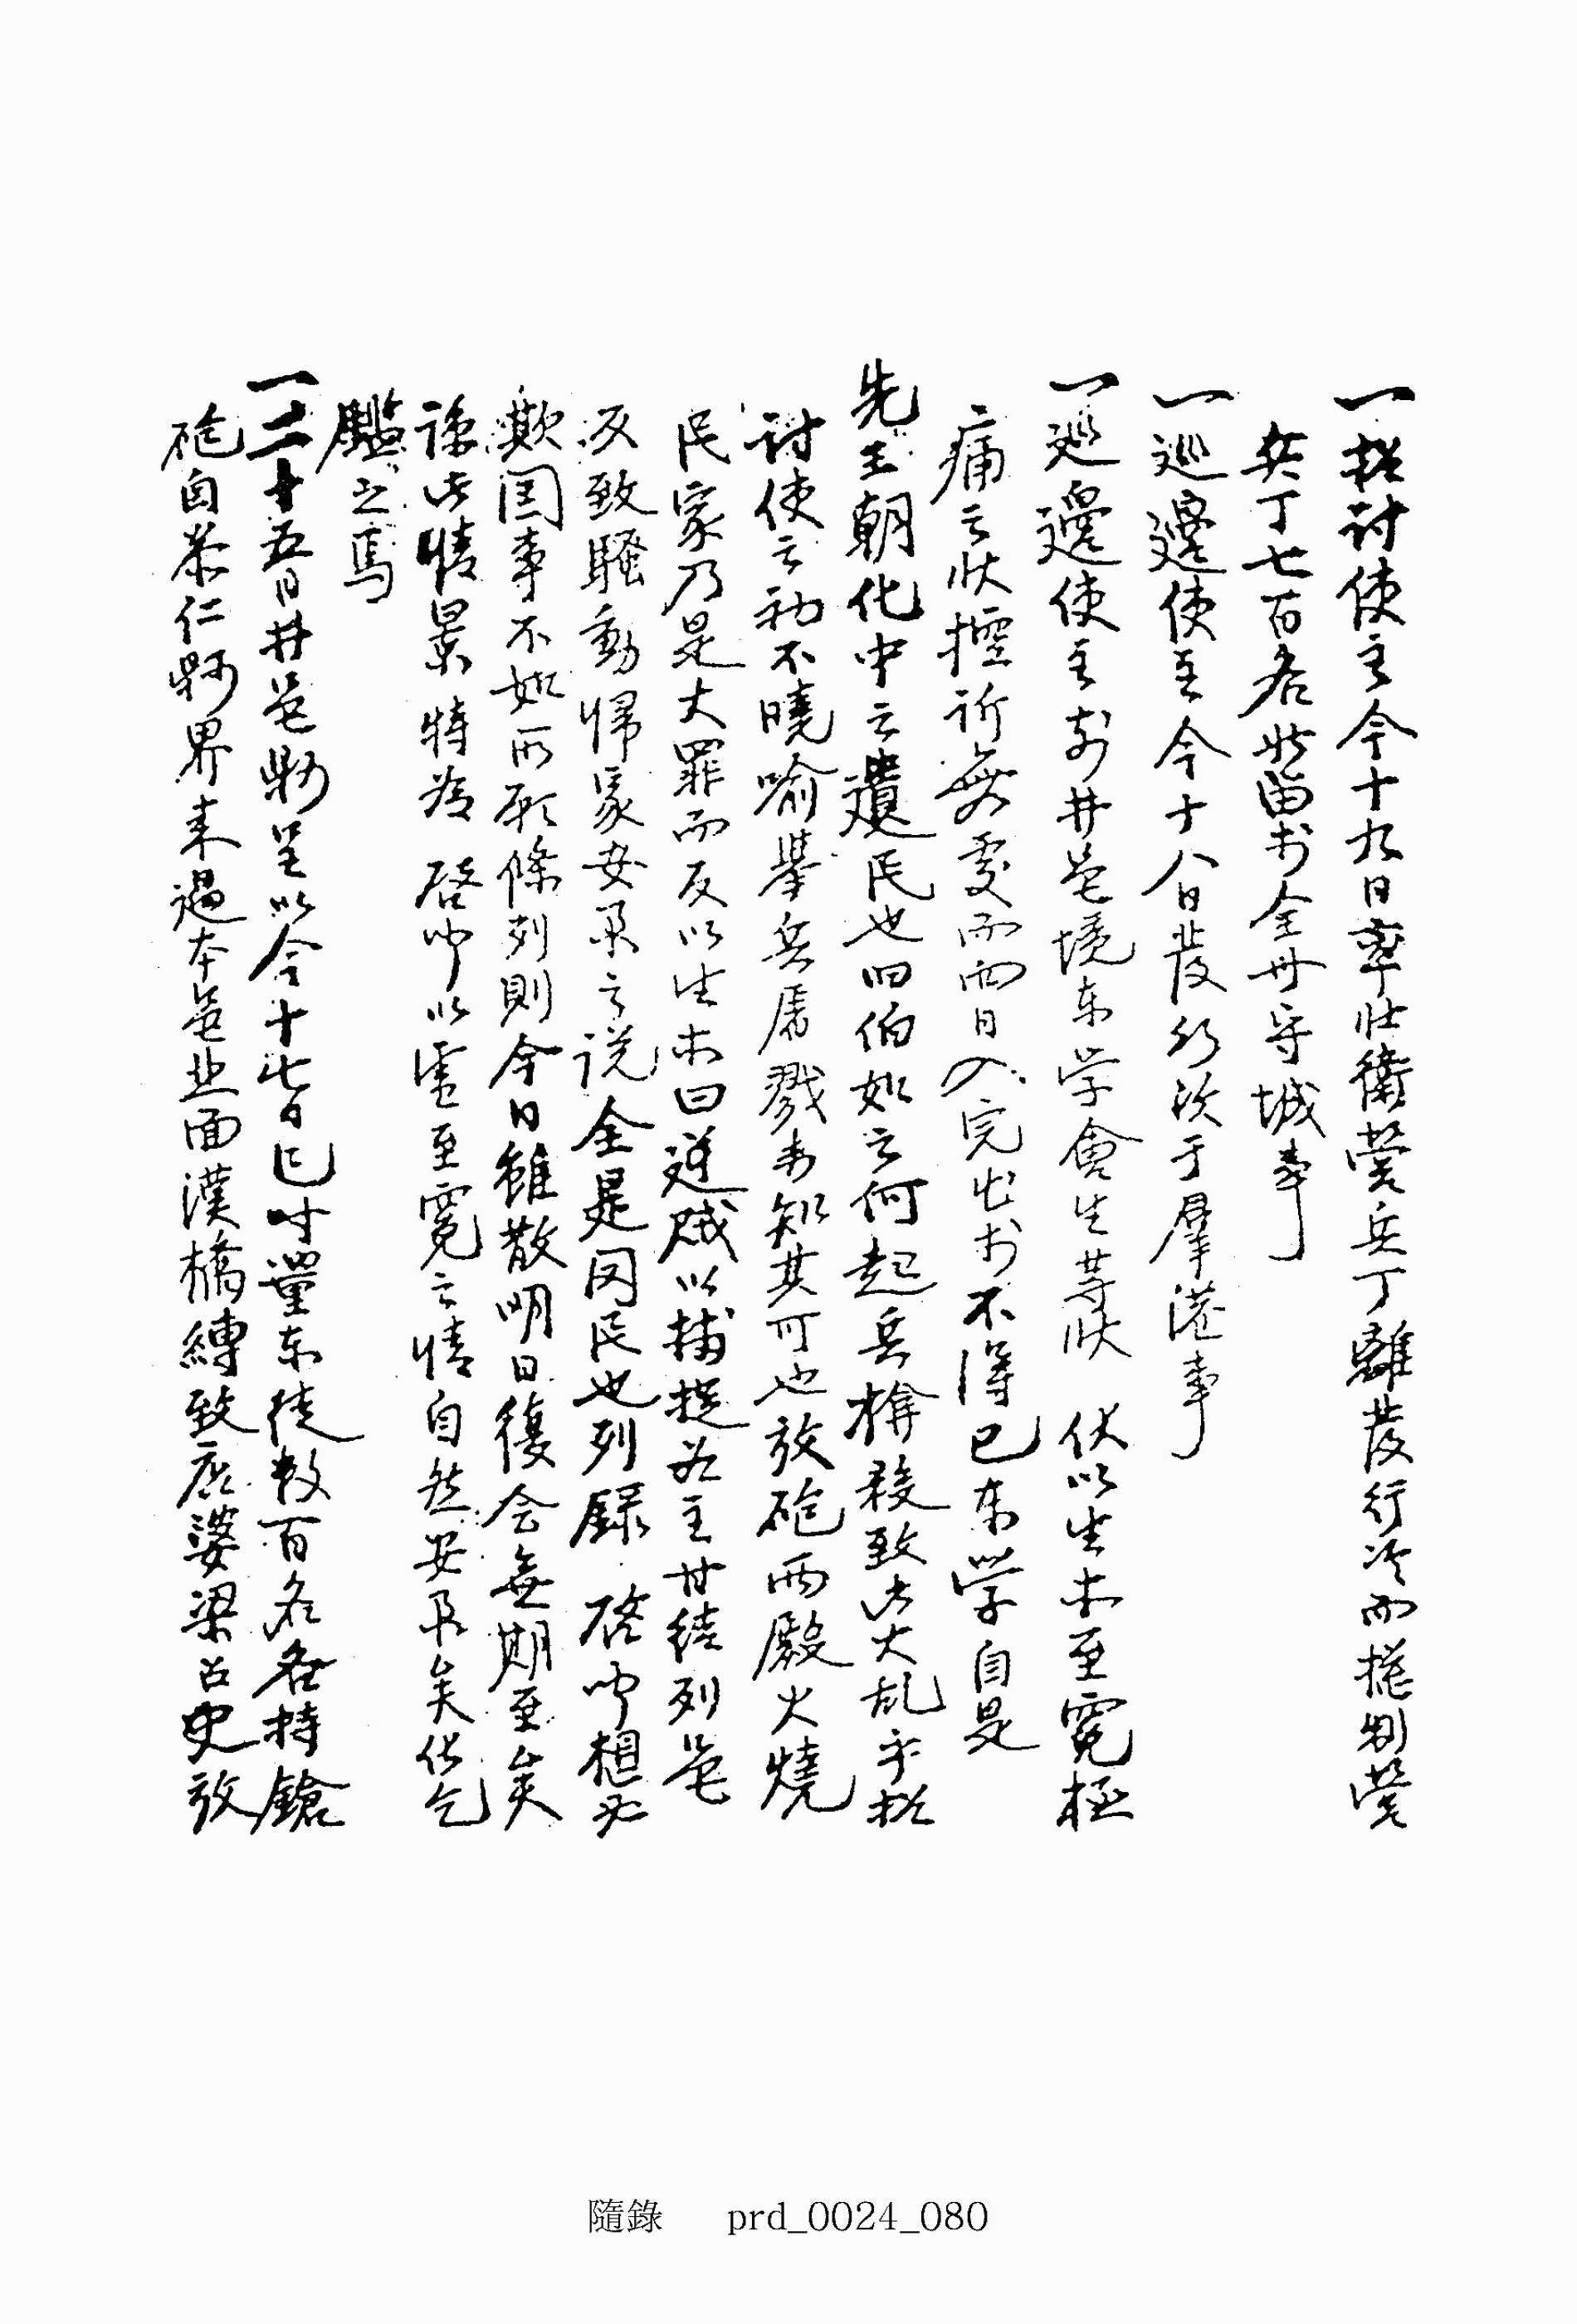 一招討使主今十九日率壯衛營兵丁離發行次而摠制營
兵丁七百名從留於全州守城事
一巡邊使主今十八日發行次于羣港事
一巡邊使主前井邑境東学會生等狀 伏以生等至寃極
痛之狀控訴無處而兩日入完出於不得已東学自是
先王朝化中之遺民也旧伯如之何起兵構殺致此大乱乎招
討使之初不曉喻擧兵屠戮未知其可也放砲兩殿火燒
民家乃是大罪而反以生等曰逆賊以捕捉爲主甘結列邑
反致騷動歸家安業之說全是罔民也列錄 啓聞想必
欺国事不如所願條列則今日雖散明日復会無期至矣
諒此情景特爲 啓聞以雪至寃之情自然安業矣伏乞
鑑之焉
一二十五日井邑縣呈以今十七日巳時量東徒數百名各持鎗
砲自泰仁縣界來過本邑北面漢橋縛致店婆梁召史放
隨錄 prd_0024_080